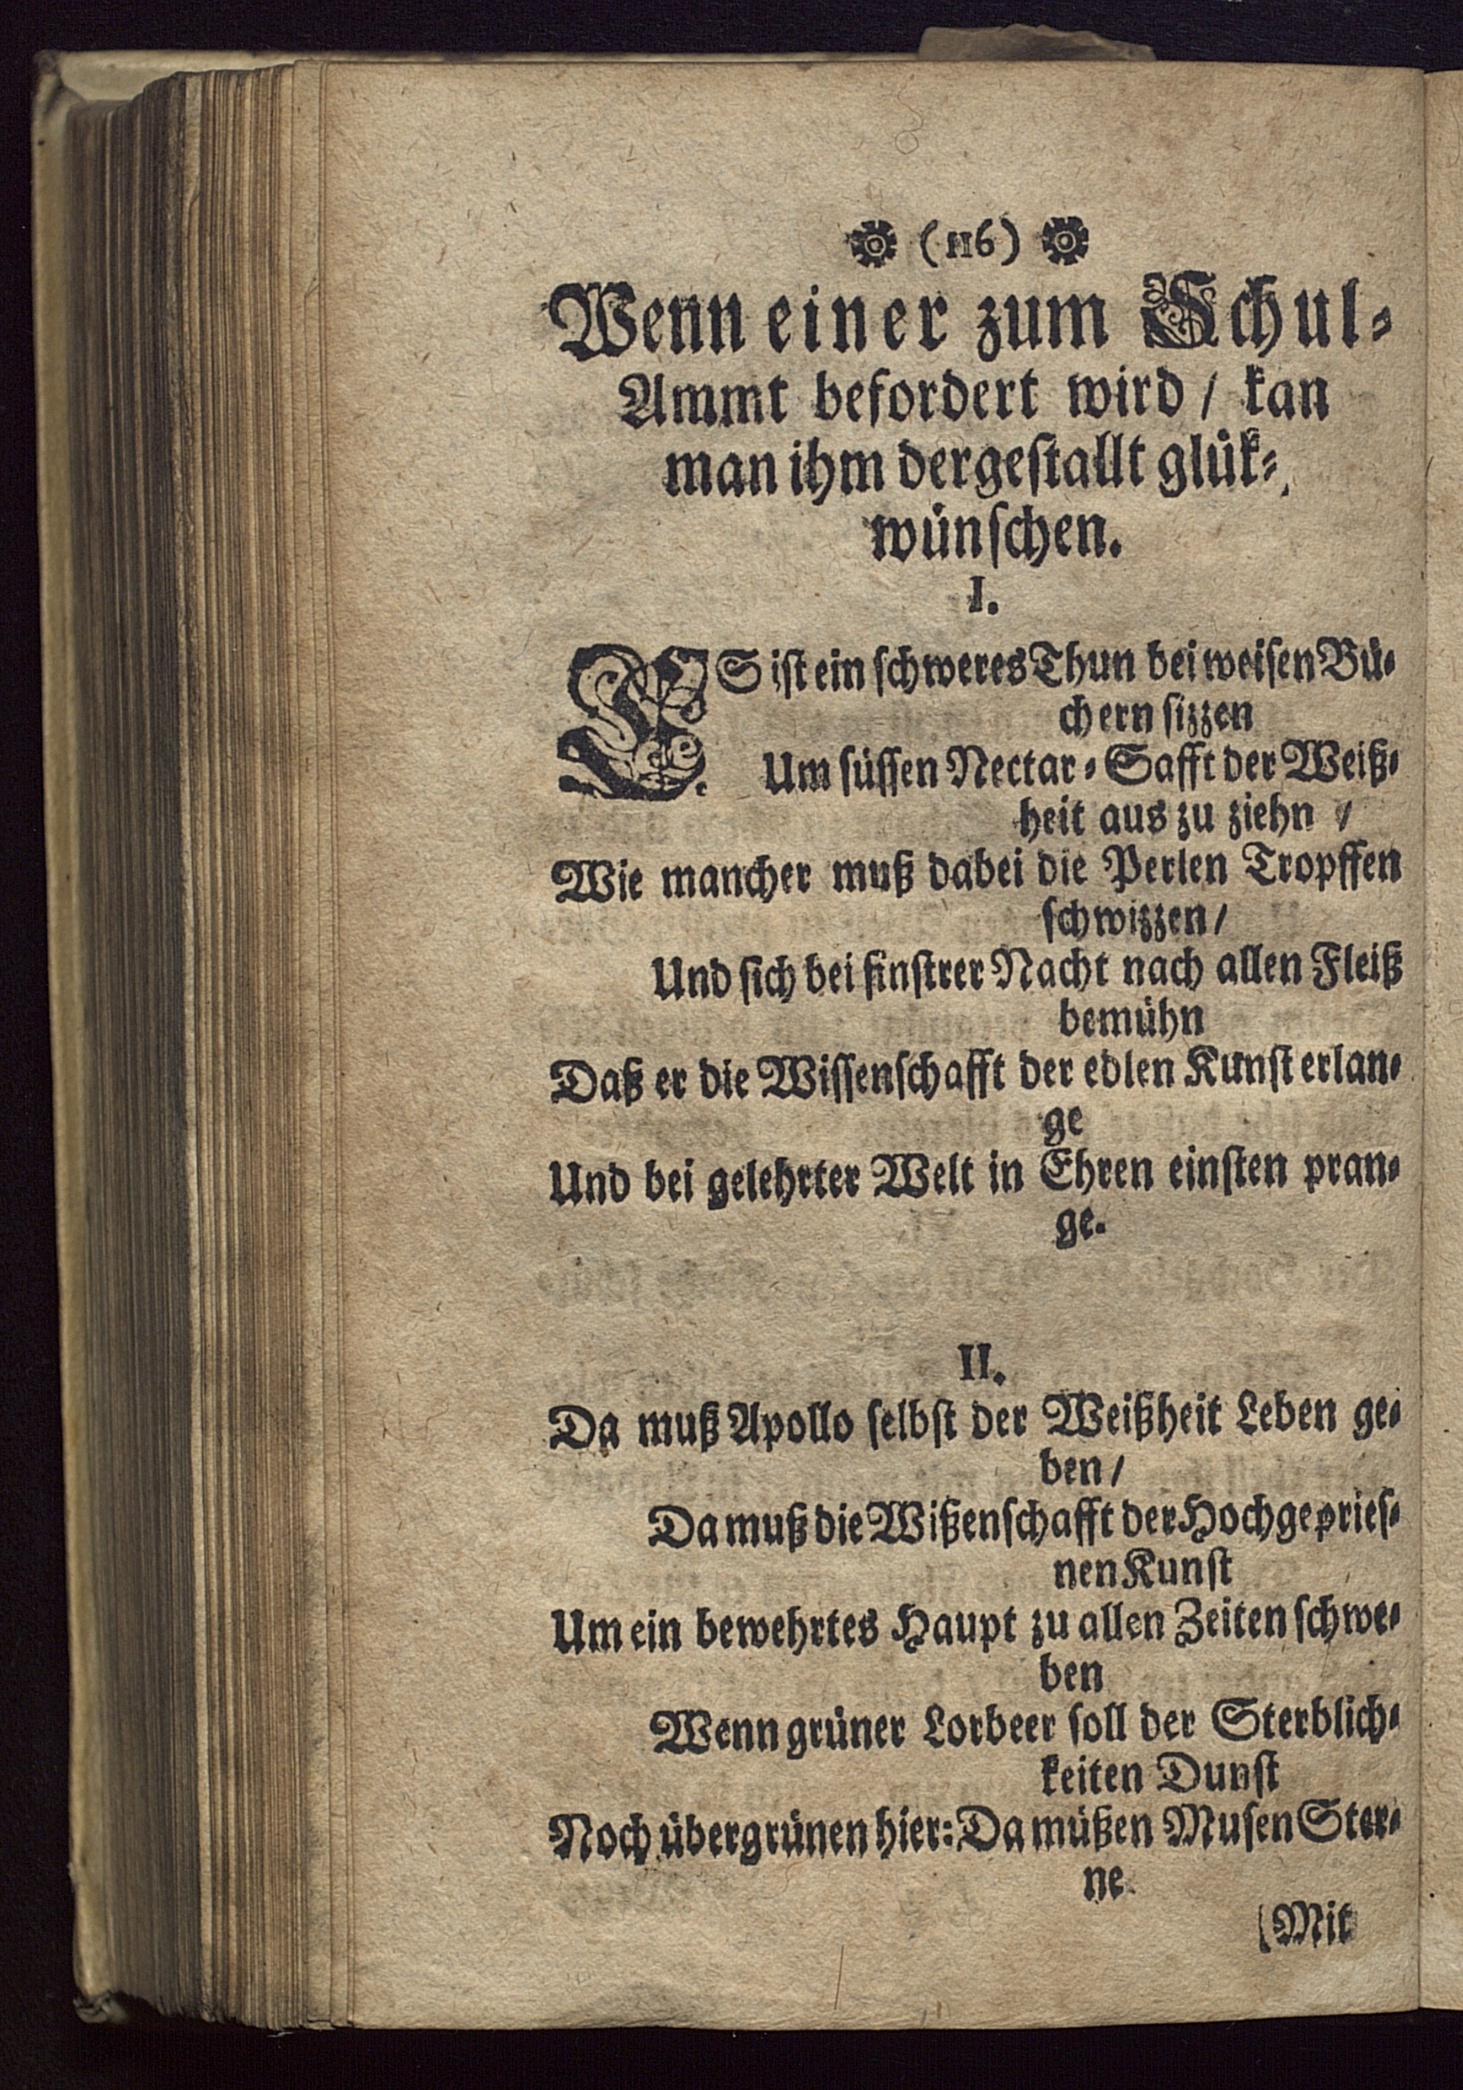 (116)
Wenn einer zum Schul-
Ammt befordert wird / kan
man ihm dergeſtallt glük-
wünſchen.
I.
ES iſt ein ſchweres Thun bei weiſen Bü-
chern ſizzen
Um ſüſſen Nectar-Safft der Weiß-
heit aus zu ziehn /
Wie mancher muß dabei die Perlen Tropffen
ſchwizzen /
Und ſich bei finſtrer Nacht nach allen Fleiß
bemühn
Daß er die Wiſſenſchafft der edlen Kunſt erlan-
ge
Und bei gelehrter Welt in Ehren einſten pran-
ge.
II.
Da muß Apollo ſelbſt der Weißheit Leben ge-
ben /
Da muß die Wißenſchafft der Hochgeprieſ-
nen Kunſt
Um ein bewehrtes Haupt zu allen Zeiten ſchwe-
ben
Wenn grüner Lorbeer ſoll der Sterblich-
keiten Dunſt
Noch übergrünen hier: Da müßen Muſen Ster-
ne
(Mit